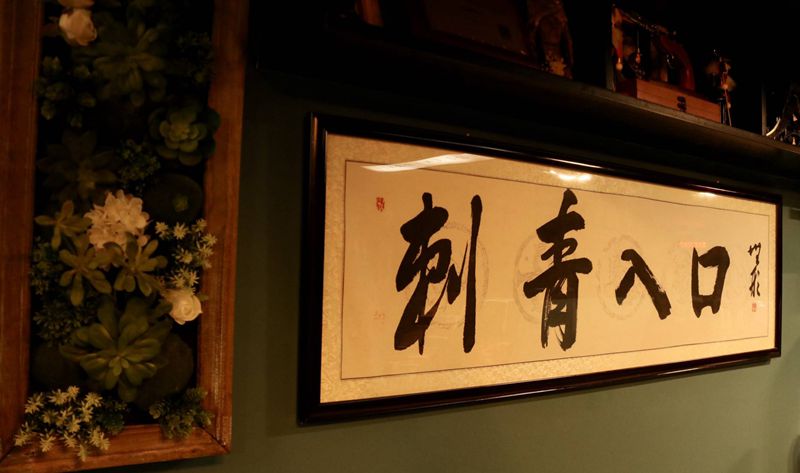 刺青入口